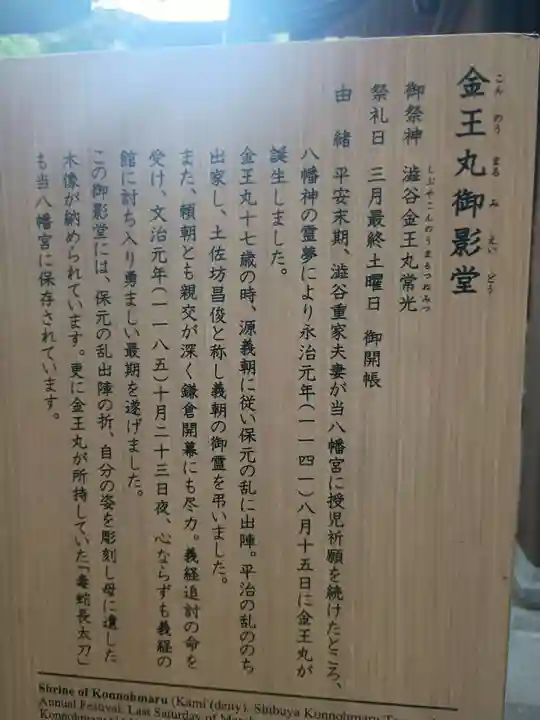 金王丸御影堂
こんのうまるみえいどう
御祭神 澁谷金王丸常光
しぶやこんのうまるつねみつ
祭礼日 三月最終土曜日 御開帳
由緒 平安末期、澁谷重家夫妻が当八幡宮に授児祈願を続けたところ、
八幡神の霊夢により永治元年(一一四一)八月十五日に金王丸が
誕生しました。
金王丸十七歳の時、源義朝に従い保元の乱に出陣。平治の乱ののち
出家し、土佐坊昌俊と称し義朝の御霊を弔いました。
また、頼朝とも親交が深く鎌倉開幕にも尽力。義経追討の命を
受け、文治元年(一一八五)十月二十三日夜、心ならずも義経の
館に討ち入り勇ましい最期を遂げました。
この御影堂には、保元の乱出陣の折、自分の姿を彫刻し母に遺した
木像が納められています。更に金王丸が所持していた「毒蛇長太刀」
も当八幡宮に保存されています。
Shrine of Konnohmaru (Kami (deity). Shibuya Konnohmaru
Annual Festival. Last Saturday of